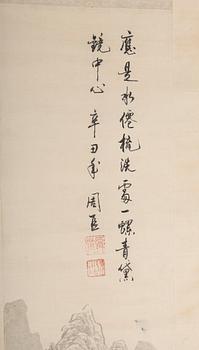 應是水僊梳洗處一螺青黛
鏡中心 辛丑年 周臣